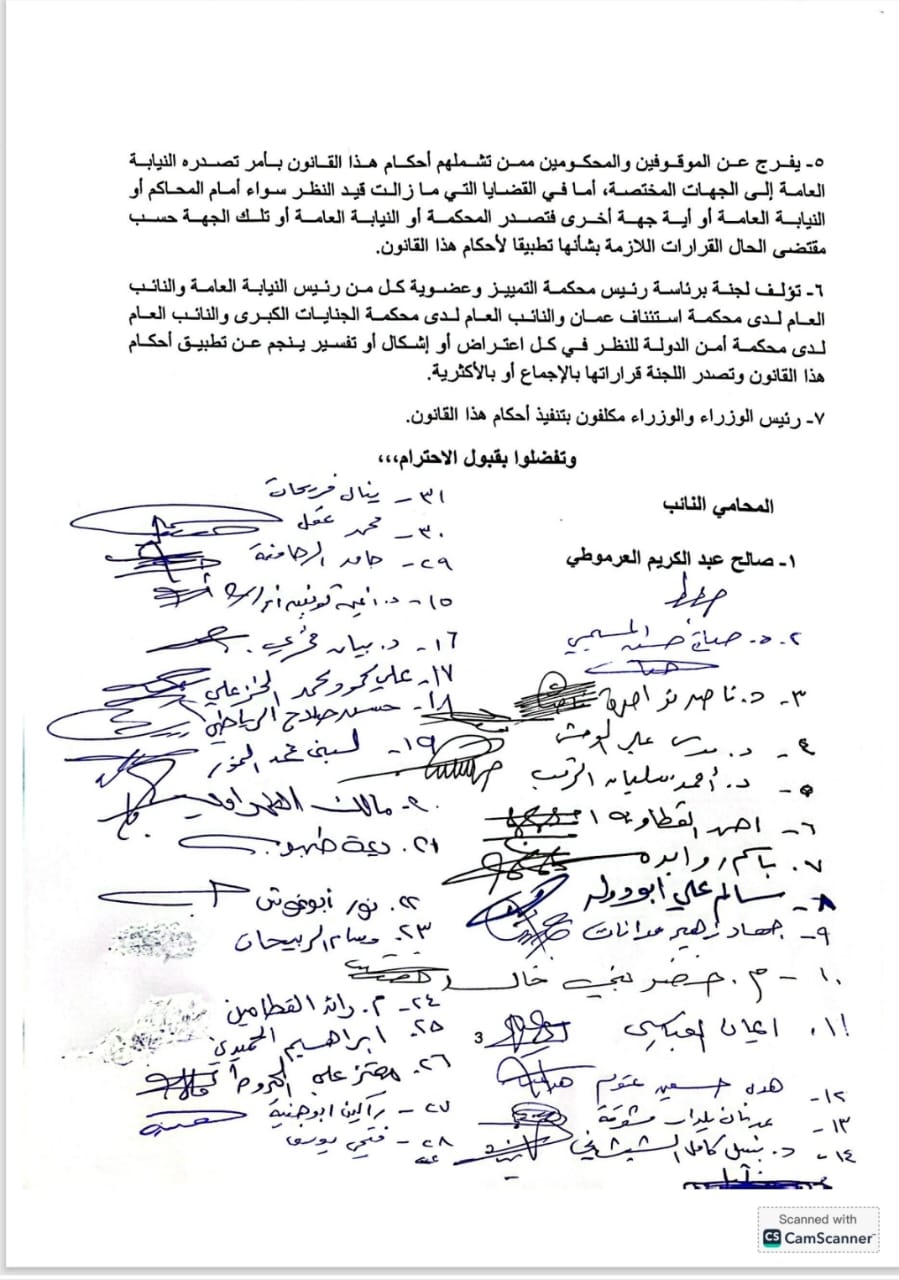 ٥- يفرج عن الموقوفين والمحكومين ممن تشملهم أحكام هذا القانون بأمر تصدره النيابة
العامة إلى الجهات المختصة، أما في القضايا التي ما زالت قيد النظر سواء أمام المحاكم أو
النيابة العامة أو أية جهة أخرى فتصدر المحكمة أو النيابة العامة أو تلك الجهة حسب
مقتضى الحال القرارات اللازمة بشأنها تطبيقا لأحكام هذا القانون.
٦- تؤلف لجنة برئاسة رئيس محكمة التمييز وعضوية كل من رئيس النيابة العامة والنائب
العام لدى محكمة استئناف عمان والنائب العام لدى محكمة الجنايات الكبرى والنائب العام
لدى محكمة أمن الدولة للنظر في كل اعتراض أو إشكال أو تفسير ينجم عن تطبيق أحكام
هذا القانون وتصدر اللجنة قراراتها بالإجماع أو بالأكثرية.
٧- رئيس الوزراء والوزراء مكلفون بتنفيذ أحكام هذا القانون.
وتفضلوا بقبول الاحترام،،،
المحامي النائب
١- صالح عبد الكريم العرموطي
٢- د.
٣- د. ناصر نواصرة
٤- د. علي
٥- د. أحمد سليمان الرقب
٦- احمد القطاونه
٧- باسم روابده
٨- سالم علي ابو دوله
٩- جهاد زهير مدانات
١٠- م. خضر بني خالد
١١- ايمان العباسي
١٢- هدى حسين عتوم
١٣- عدنان يلدار مشوقة
١٤- د. نبيل كامل الشيشاني
٣١- ينال فريحات
٣٠- محمد عقل
٢٩- حامد الرحامنة
١٥- د.
١٦- د. بيان فخري
١٧- علي محمود محمد الخزعلي
١٨- حسين صلاح الرياطي
١٩- لبنى محمد النمور
٢٠- مالك الطهراوي
٢١- ديمة طهبوب
٢٢- نور أبو غوش
٢٣- وسام الربيحات
٢٤- م. رائد القطامين
٢٥- ابراهيم الحميدي
٢٦- معتز علي
٢٧- راكين ابو هنية
٢٨- فتحي
3
Scanned with
CS CamScanner